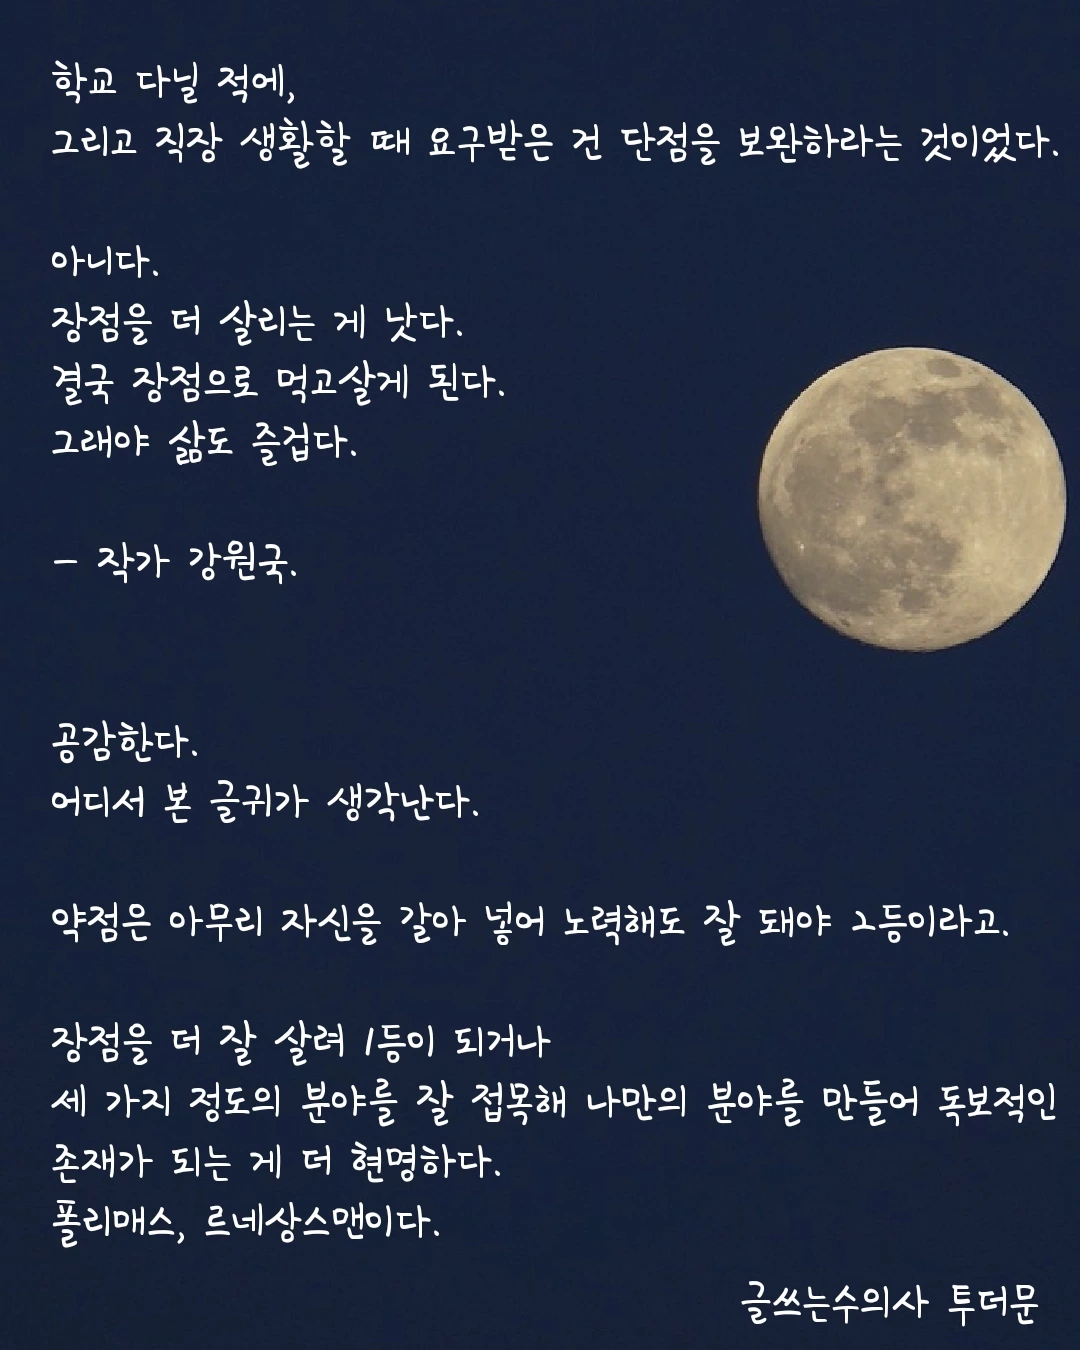 학교 다닐 적에,
그리고 직장 생활할 때 요구받은 건 단점을 보완하라는 것이었다.
아니다.
장점을 더 살리는 게 낫다.
결국 장점으로 먹고살게 된다.
그래야 삶도 즐겁다.
- 작가 강원국.
공감한다.
어디서 본 글귀가 생각난다.
약점은 아무리 자신을 갈아 넣어 노력해도 잘 돼야 2등이라고.
장점을 더 잘 살려 1등이 되거나
세 가지 정도의 분야를 잘 접목해 나만의 분야를 만들어 독보적인
존재가 되는 게 더 현명하다.
폴리매스, 르네상스맨이다.
글쓰는수의사 투더문